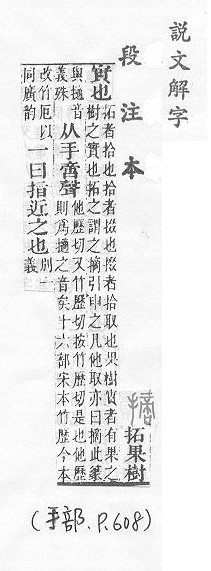 說文解字
段注本
摘
拓果樹
實也
拓者拾也拾者掇也掇者拾取也果樹實者有果之
樹之實也拓之謂之摘引申之凡他取亦曰摘此篆
與擿音
義殊
从手啻聲
他歷切又竹歷切按竹歷切是也他歷
則爲擿之音矣十六部宋本竹歷今本
改竹厄以
同廣韵
一曰指近之也
別一
義
(手部.P.608)